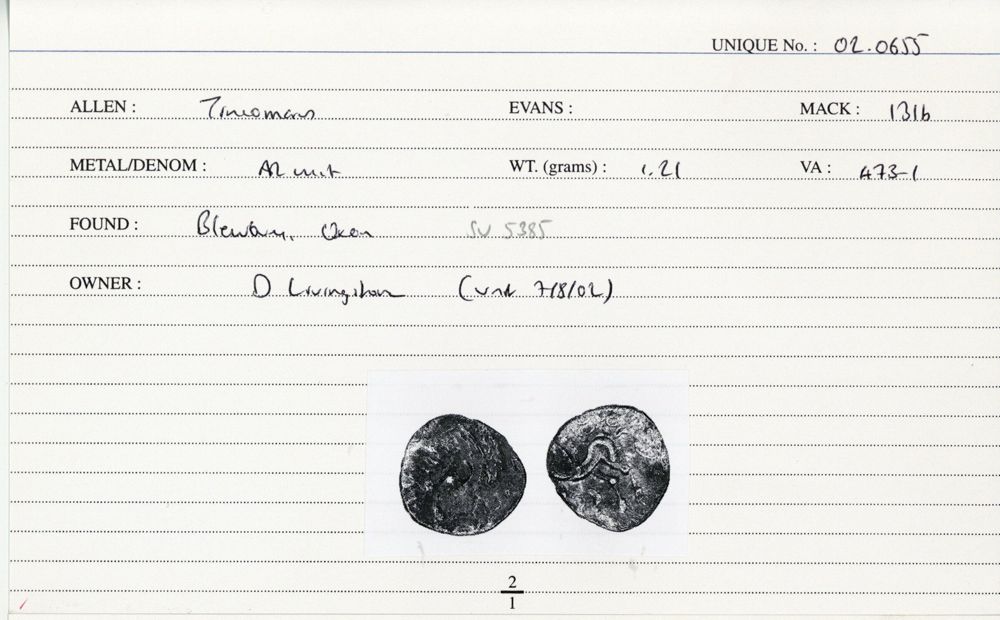 UNIQUE No. : 02.0655
ALLEN : Tincomarus EVANS : MACK : 131b
METAL/DENOM : AR unit WT. (grams) : 1.21 VA : 473-1
FOUND : Blewbury, Oxon SU 5385
OWNER : D Livingston ( 7/8/02)
2
1